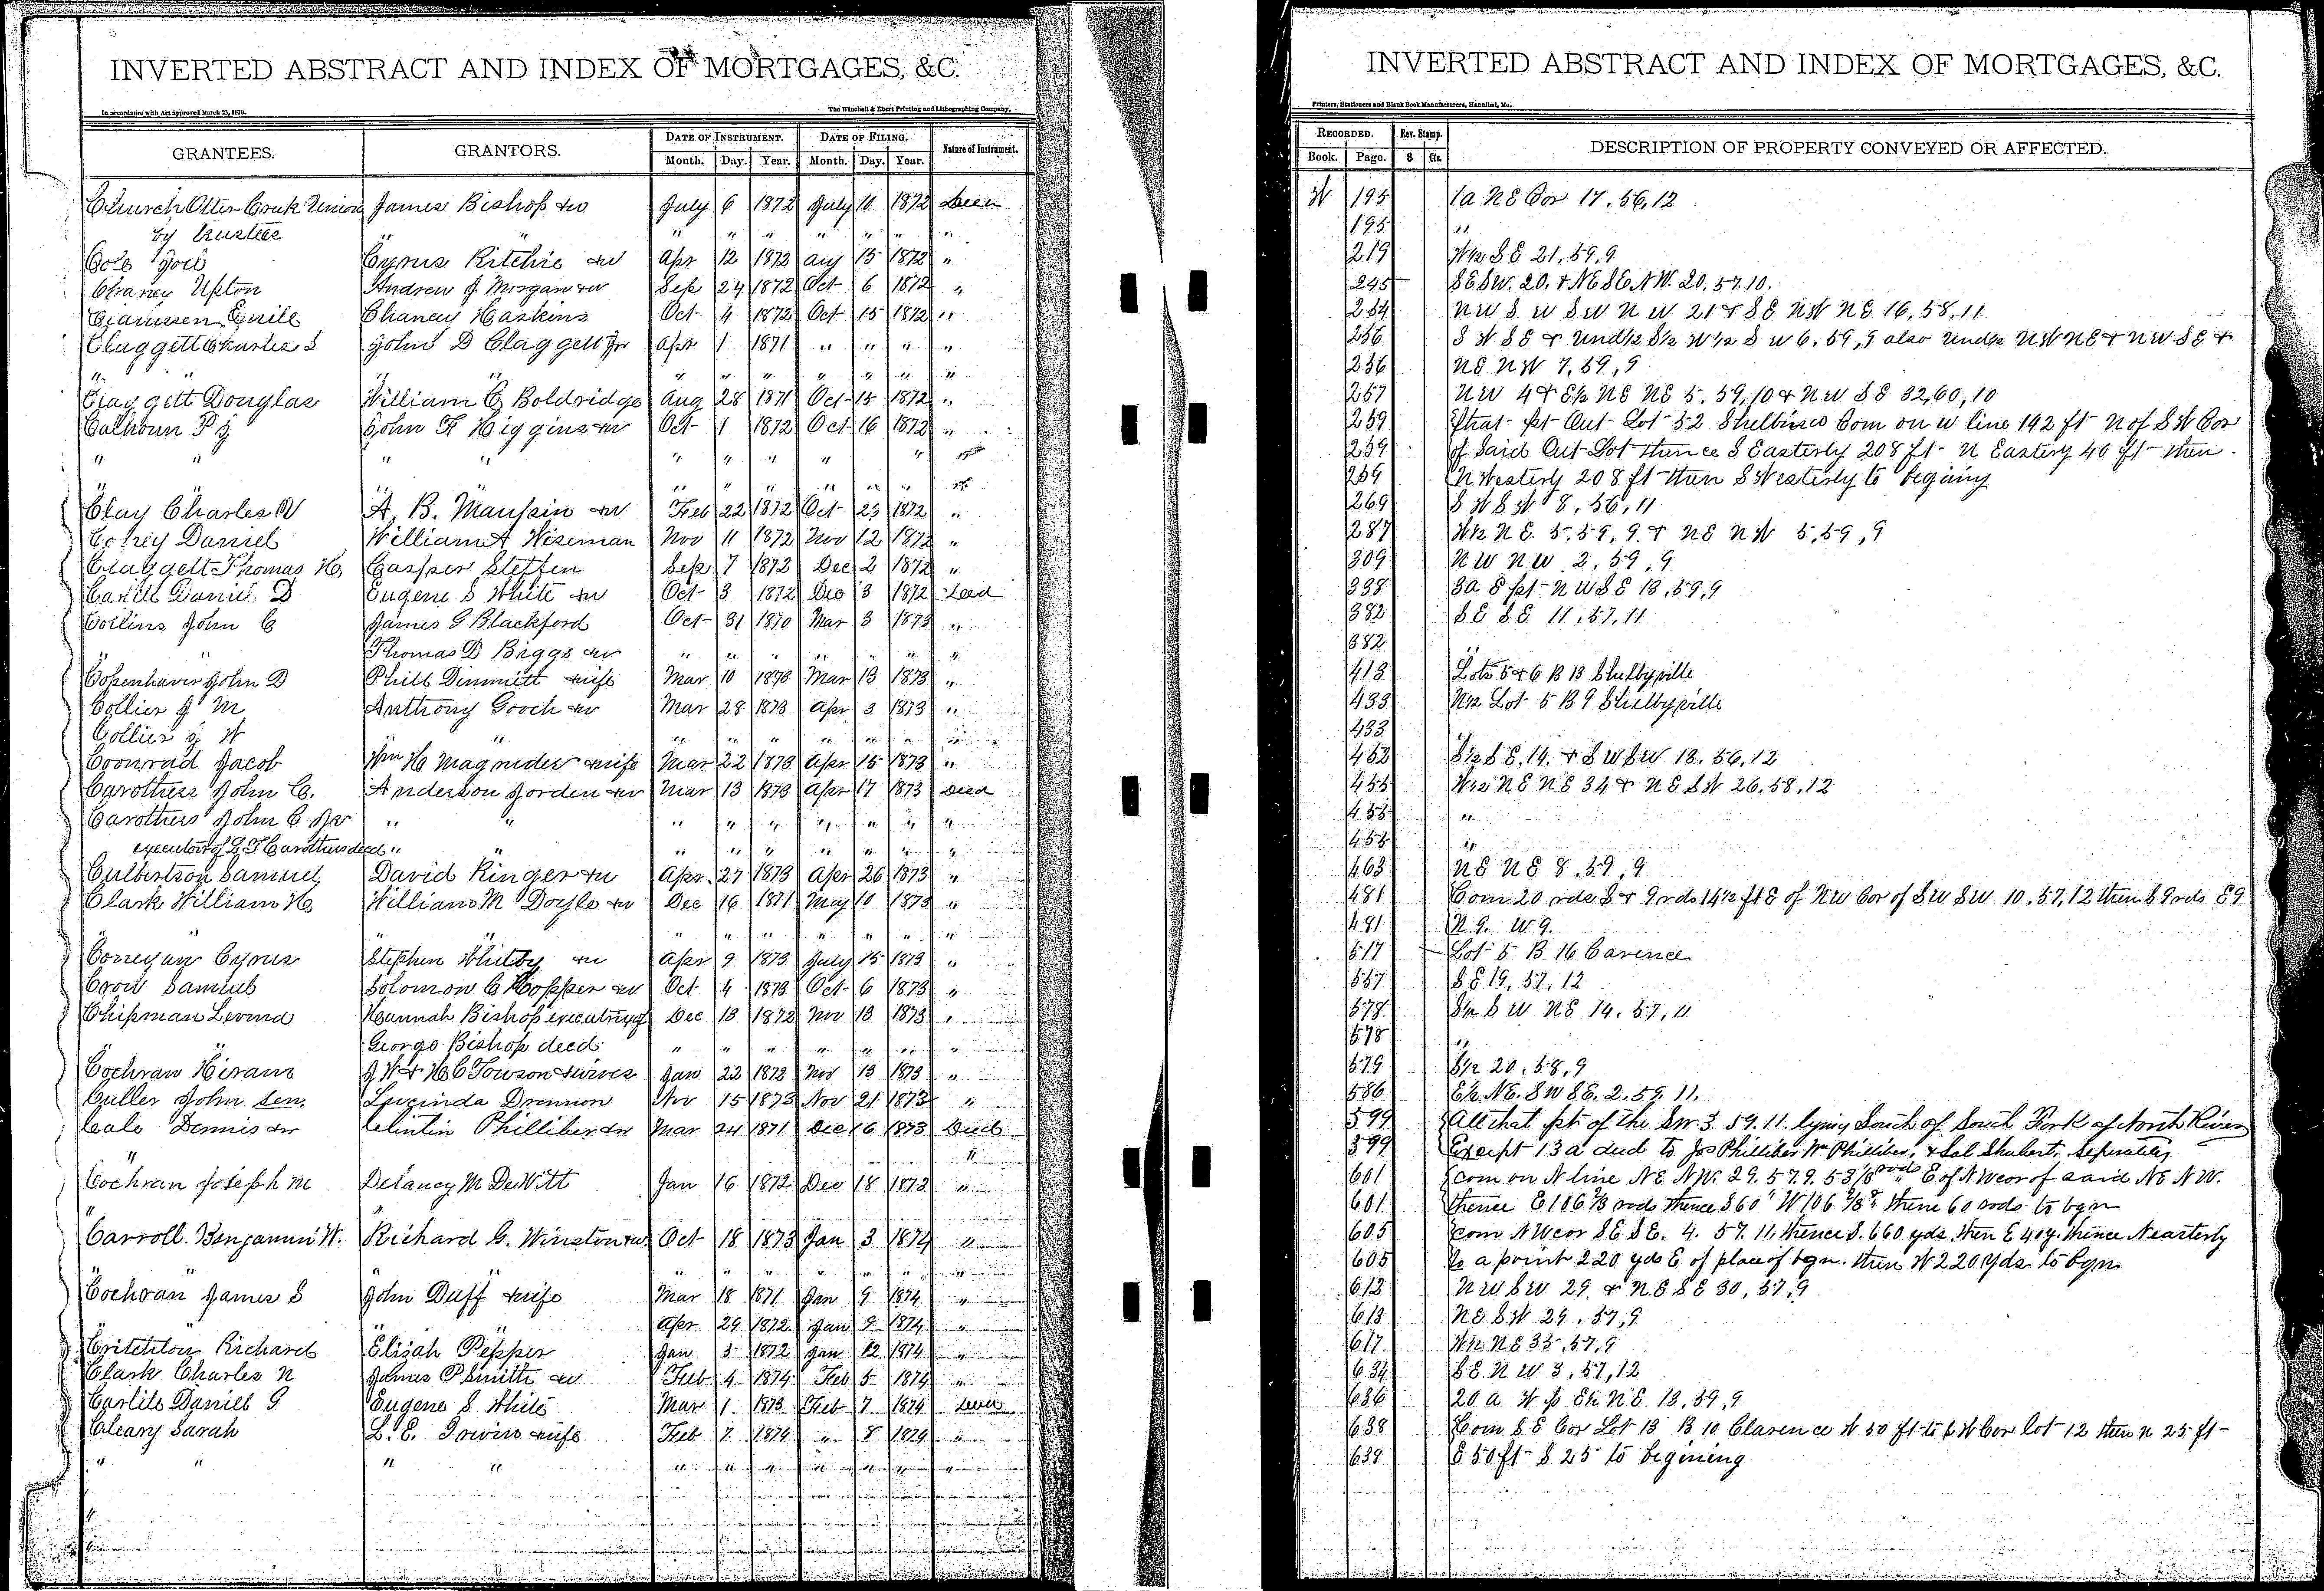 INVERTED ABSTRACT AND INDEX OF MORTGAGES, &C.
In accordance with Act approved March 25, 1870.
The Winchell & Ebert Printing and Lithographing Company,
GRANTEES. GRANTORS. DATE OF INSTRUMENT. DATE OF FILING. Nature of Instrument.
Month. Day. Year. Month. Day. Year.
Church Otter Creek Union James Bishop &w July 6 1872 July 10 1872 Deed
by trustees " " " " " " "
Cole Cyrus Ritchie &w Apr 12 1872 Aug 15 1872 "
Chaney Upton Andrew J Morgan &w Sep 24 1872 Oct 6 1872 "
Emile Chaney Haskins Oct 4 1872 Oct 15 1872 "
Claggett Charles S John D Claggett Apr 1 1871 " " " "
" " " " " " " " "
Claggett Douglas William C Boldridge Aug 28 1871 Oct 15 1872 "
Calhoun P J John F Higgins &w Oct 1 1872 Oct 16 1872 "
" " " " " " " "
" " " " " " " "
Clay Charles W A. B. Maupin &w Feb 22 1872 Oct 23 1872 "
Daniel William A Wiseman Nov 11 1872 Nov 12 1872 "
Claggett Thomas H Casper Steffen Sep 7 1872 Dec 2 1872 "
Daniel D Eugene S White &w Oct 3 1872 Dec 3 1872 Deed
Collins John C James G Blackford Oct 31 1870 Mar 3 1873 "
" Thomas D Biggs &w " " " " " " "
Copenhaver John D Phill Dimmitt &wife Mar 10 1873 Mar 13 1873 "
Collier J M Anthony Gooch &w Mar 28 1873 Apr 3 1873 "
Collier J W " " " " " " " " "
Coonrad Jacob Wm H Magruder &wife Mar 22 1873 Apr 15 1873 "
Carothers John C. Anderson Jorden &w Mar 13 1873 Apr 17 1873 Deed
Carothers John C " " " " " " " " "
executor of Carothers deed " " " " " " " " "
Culbertson Samuel David Ringer &w Apr 27 1873 Apr 26 1873 "
Clark William H William M Doyle &w Dec 16 1871 May 10 1873 "
" " " " " " " "
Cyrus Stephen Whitby &w Apr 9 1873 July 15 1873 "
Crow Samuel Solomon C Hopper &w Oct 4 1873 Oct 6 1873 "
Chipman Hannah Bishop executrix of Dec 13 1872 Nov 13 1873 "
" George Bishop deed. " " " " " " "
Cochran Hiram J W & H C Towson &wives Jan 22 1873 Nov 13 1873 "
Culler John Sen. Lucinda Drennon Nov 15 1873 Nov 21 1873 "
Cale Dennis &w Philliber &w Mar 24 1871 Dec 16 1873 Deed
" "
Cochran Joseph M Delancy M DeWitt Jan 16 1872 Dec 18 1873 "
"
Carroll. Benjamin W. Richard G. Winston &w. Oct 18 1873 Jan 3 1874 "
" " " " " " " " "
Cochran James S John Duff &wife Mar 18 1871 Jan 9 1874 "
" " Apr 29 1872 Jan 9 1874 "
Richard Elijah Pepper Jan 3 1872 Jan 12 1874 "
Clark Charles N James P Smith &w Feb 4 1874 Feb 5 1874 "
Carlile Daniel G Eugene S White Mar 1 1873 Feb 7 1874 Deed
Cleary Sarah L. E. Irwin &wife Feb 7 1874 " 8 1874 "
" " " " " " " " " " "
INVERTED ABSTRACT AND INDEX OF MORTGAGES, &C.
Printers, Stationers and Blank Book Manufacturers, Hannibal, Mo.
RECORDED. Rev. Stamp. DESCRIPTION OF PROPERTY CONVEYED OR AFFECTED.
Book. Page. $ Cts.
W 195 1a NE Cor 17, 56, 12
195 "
219 W½ SE 21, 59, 9
245 SE SW. 20. & NE SE NW. 20. 57. 10.
254 NW S W SW N W 21 & SE NW NE 16, 58, 11
256 S W SE & und½ S½ W½ S W 6, 59, 9 also und½ NW NE & NW SE &
256 NE NW 7, 59, 9
257 NW 4 & E½ NE NE 5, 59, 10 & NW SE 32, 60, 10
259 that pt Out Lot 52 Shelbina Com on w line 192 ft N of SW Cor
259 of said Out Lot thence S Easterly 208 ft N Easterly 40 ft then
259 N Westerly 208 ft then S Westerly to begining
269 S W S W 8, 56, 11
287 W½ NE. 5. 59, 9. & NE NW 5, 59, 9
309 NW NW 2, 59, 9
338 3a E pt NW SE 13, 59, 9
382 SE SE 11, 57, 11
382 "
413 Lots 5 & 6 B 13 Shelbyville
433 N½ Lot 5 B 9 Shelbyville
433 "
452 S½ SE. 14. & SW SW 13. 56, 12
455 W½ NE NE 34 & NE SW 26, 58, 12
455 "
455 "
463 NE NE 8, 59, 9
481 Com 20 rds S & 9 rds 14½ ft E of NW Cor of SW SW 10, 57, 12 then S 9 rds E 9
481 N. 9. W 9.
517 Lot 5 B. 16 Carence
557 SE 19, 57, 12
578 S½ S W NE 14, 57, 11
578 "
579 S½ 20, 58, 9
586 E½ NE. SW SE. 2. 59. 11.
599 All that pt of the SW. 3. 59. 11. lying South of South Fork of North River
599 Except 13 a deed to Jos Philliber Wm Philliber, & Sol Shubert, Seperately
601 com on N line NE. NW. 29. 57. 9. 53⅓ rods E of NW cor of said NE NW.
601 thence E 106⅔ rods thence S 60 " W 106⅔ " thence 60 rods to bgn
605 com NW cor SE SE. 4. 57. 11. thence S. 660 yds. then E 40 y. thence N easterly
605 to a point 220 yds E of place of bgn. then W 220 yds. to bgn.
613 NW SW 29 & NE SE 30, 57, 9
613 NE SW 29, 57, 9
617 W½ NE 35, 57, 9
634 SE NW 3, 57, 12
636 20 a W p E½ NE. 13, 59, 9
638 Com SE Cor Lot 13 B 10 Clarence W 50 ft to SW Cor lot 12 then N 25 ft
638 E 50 ft S 25 to begining